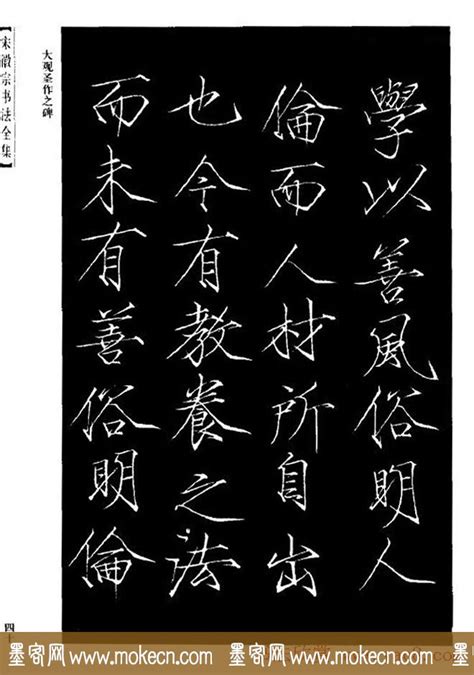 【宋徽宗书法全集】
大观圣作之碑
學以善風俗明人
倫而人材所自出
也今有教養之法
而未有善俗明倫
四十
墨客网 www.mokecn.com 墨客网 www.mokecn.com